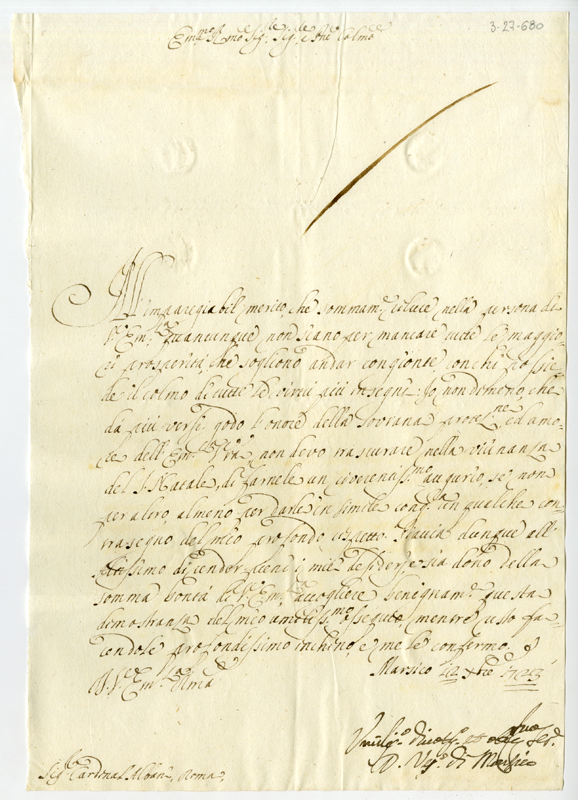 3-27-680
Em.mo e R.mo Sig.r Sig.r e P.ne Col.mo
All' imparegiabil merito, che sommam.te riluce nella persona di
V.ra Em.za quantunque non siano per mancare tutte le maggio-
ri prosperità, che sogliono andar congionte con chi possie-
de il colmo di tutte le virtù più insegni: Io nondimeno, che
da più versi godo l'onore della sovrana protez.ne, ed amo-
re dell' Em.za V.ra, non devo trascurare nella vicinanza
del S. Natale, di farnele un riverentiss.mo augurio, se non
per altro, almeno per darle in simile cong.ra un qualche con-
trassegno del mio profondo rispetto. Piaccia dunque all'
Altissimo di render pieni i miei desiderj, e sia dono della
somma bontà di V.ra Em.za accogliere benignam.te questa
demostranza del mio umiliss.mo ossequio, mentre resto fa-
cendole profondissimo inchino, e me le confermo.
D. V.ra Em.za Rma
Marsico 12 Xbre 1723
Umilis.o Divotis.o ed Oblig.o Ser.
D. Ves.o di Marsico
Sig.r Cardenal Albani, Roma,